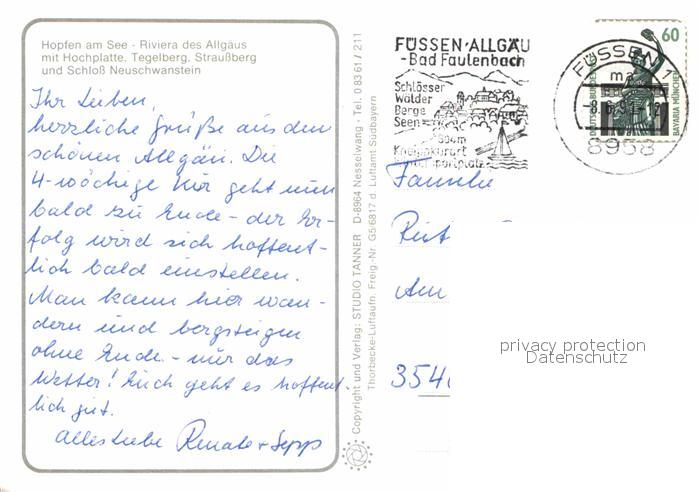 Hopfen am See - Riviera des Allgäus
mit Hochplatte, Tegelberg, Straußberg
und Schloß Neuschwanstein
Ihr Lieben,
herzliche Grüße aus dem
schönen Allgäu. Die
4-wöchige Kur geht nun
bald zu Ende - der Er-
folg wird sich hoffent-
lich bald einstellen.
Man kann hier wan-
dern und bergsteigen
ohne Ende - nur das
Wetter! Euch geht es hoffent-
lich gut.
Alles Liebe Renate + Sepp
Copyright und Verlag: STUDIO TANNER D-8964 Nesselwang · Tel. 0 83 61 / 211
Thorbecke-Luftaufn. Freig.-Nr. G5/6817 d. Luftamt Südbayern
FÜSSEN·ALLGÄU
-Bad Faulenbach
Schlösser
Wälder
Berge
Seen
Kneippkurort
FÜSSEN 1
ma
8958
60
DEUTSCHE BUNDES
BAVARIA MÜNCHEN
Familie
Am
354
privacy protection
Datenschutz